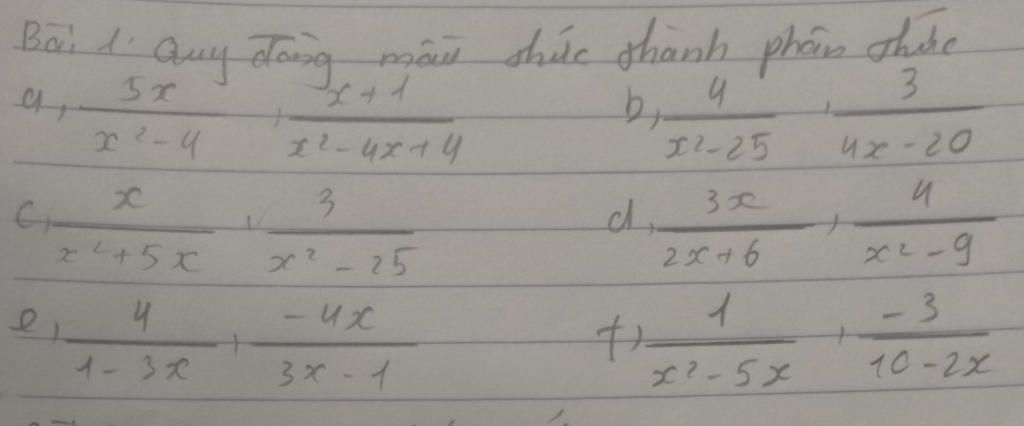 Bài 1: Quy đồng mẫu thức thành phân thức
a, 5x/(x²-4) , (x+1)/(x²-4x+4) b, 4/(x²-25) , 3/(4x-20)
c, x/(x²+5x) , 3/(x²-25) d, 3x/(2x+6) , 4/(x²-9)
e, 4/(1-3x) , -4x/(3x-1) f, 1/(x²-5x) , -3/(10-2x)